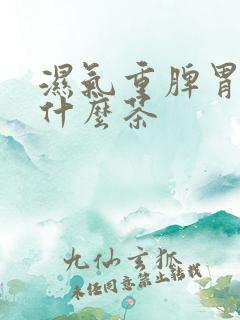 濕氣重脾胃
什麼茶
九仙玄狐
未經同意禁止轉載